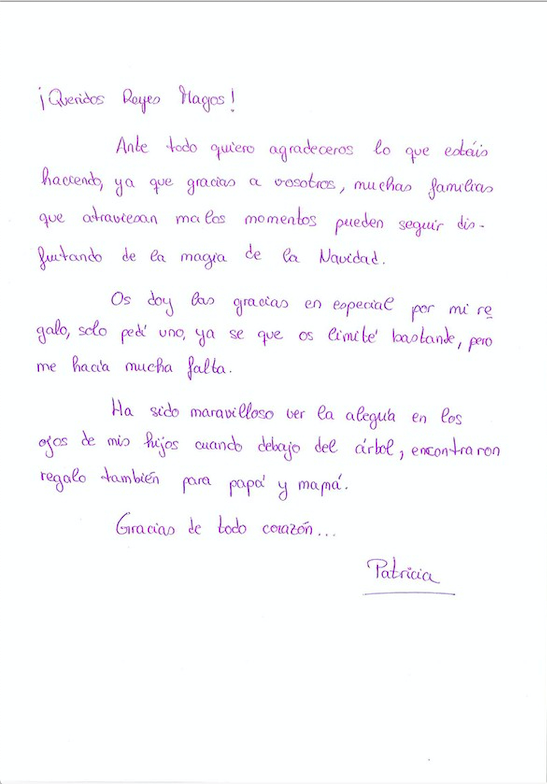 ¡Queridos Reyes Magos!
Ante todo quiero agradeceros lo que estáis
haciendo, ya que gracias a vosotros, muchas familias
que atraviesan malos momentos pueden seguir dis-
frutando de la magia de la Navidad.
Os doy las gracias en especial por mi re
galo, solo pedí uno, ya se que os limité bastande, pero
me hacía mucha falta.
Ha sido maravilloso ver la alegría en los
ojos de mis hijos cuando debajo del árbol, encontraron
regalo también para papá y mamá.
Gracias de todo corazón...
Patricia